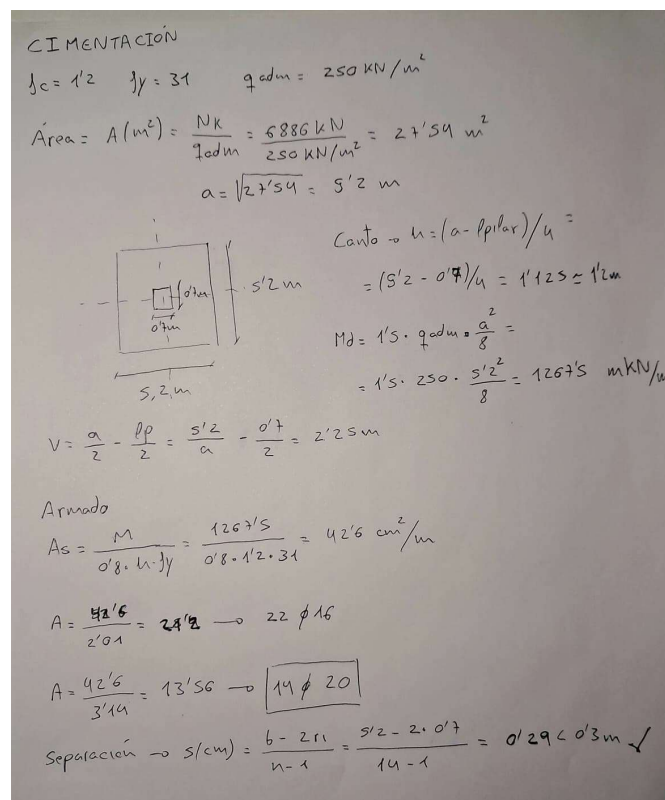 CIMENTACIÓN
fc = 1'2 fy = 31 q adm = 250 KN/m²
Área = A(m²) = NK / qadm = 6886 kN / 250 KN/m² = 27'54 m²
a = √27'54 = 5'2 m
Canto → h = (a - lpilar)/4 =
= (5'2 - 0'7)/4 = 1'125 ≃ 1'2m
0'7m
0'7m
5'2 m
5,2, m
Md = 1'5 · qadm · a²/8 =
= 1'5 · 250 · 5'2²/8 = 1267'5 mKN/m
V = a/2 - lp/2 = 5'2/a - 0'7/2 = 2'25m
Armado
As = M / 0'8 · h · fy = 1267'5 / 0'8 · 1'2 · 31 = 42'6 cm²/m
A = 42'6 / 2'01 = 21'2 → 22 ϕ 16
A = 42'6 / 3'14 = 13'56 → 14 ϕ 20
Separación → s(cm) = b - 2r1 / n - 1 = 5'2 - 2 · 0'7 / 14 - 1 = 0'29 < 0'3m ✓